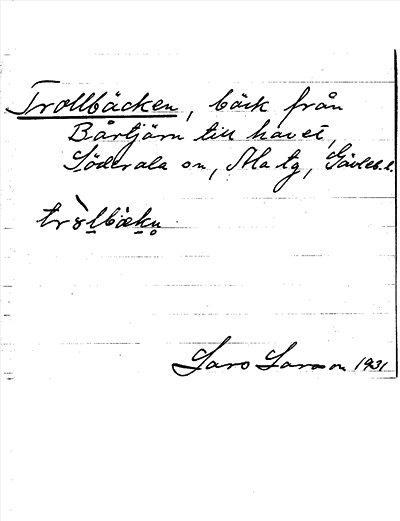 Trollbäcken, bäck från
Bårtjärn till havet,
Söderala sn, Ala tg, Gävleb. l.
tròlbäkn̥
Lars Larsson 1931